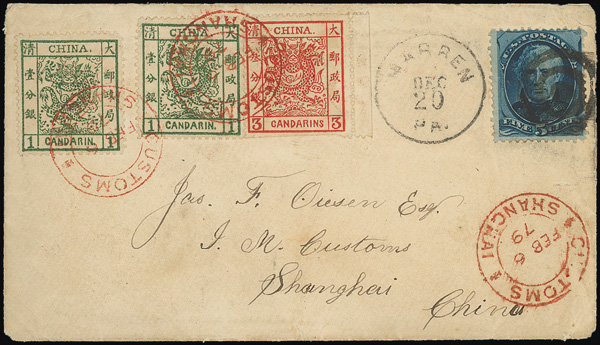 CHINA.
大清
郵政局
壹分銀
1 CANDARIN. 1
CHINA.
大清
郵政局
壹分銀
1 CANDARIN. 1
CHINA.
大清
郵政局
3 CANDARINS 3
WARREN
DEC
20
PA.
U.S. POSTAGE
FIVE 5 CENTS
CUSTOMS
CUSTOMS
SHANGHAI
FEB 6
79
Jas. F. Oiesen Esq.
I. M. Customs
Shanghai
China